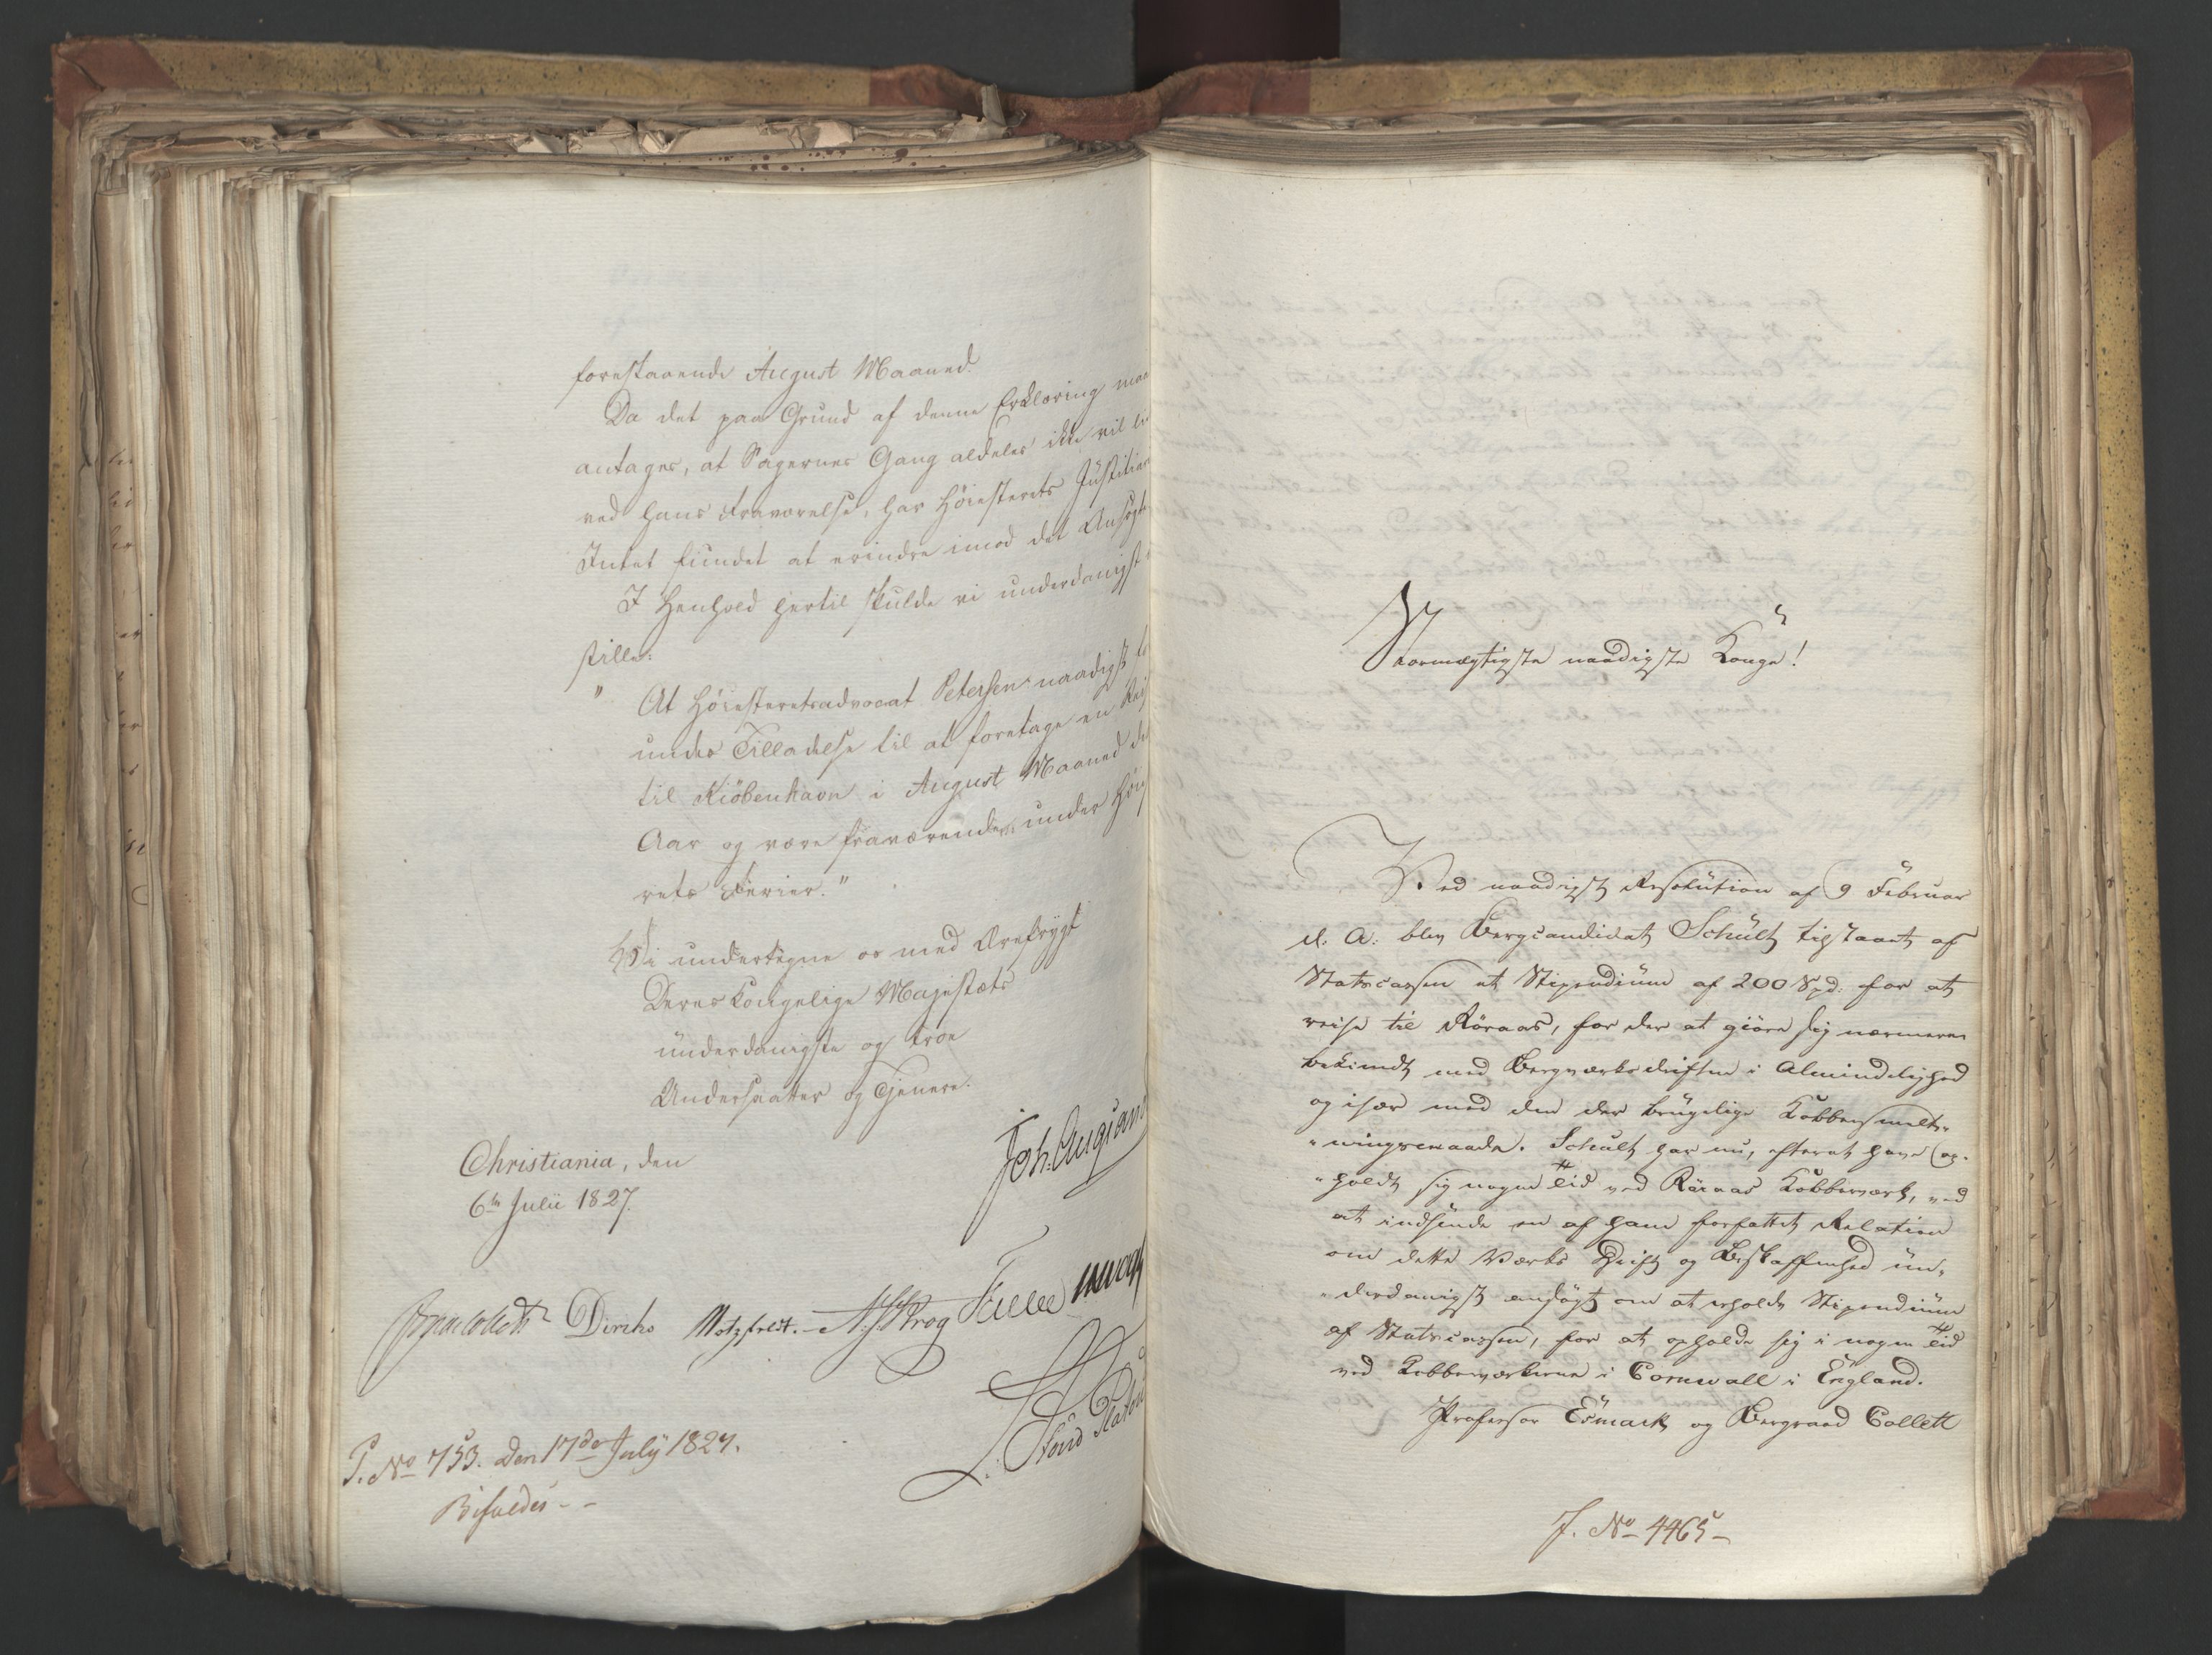 forestaaende August Maaned.
Da det paa Grund af denne Erklæring maa
antages, at Sagernes Gang aldeles ikke vil li
ved hans Fraværelse, har Høiesterets Justitiari
Intet fundet at erindre imod det Ansøgte
I Henhold hertil skulde vi underdanigst
stille:
" At Høiesteretsadvocat Petersen naadigst
undes Tilladelse til at foretage en Reis
til Kiöbenhavn i August Maaned d
Aar og være fraværende under Høie
rets Ferier."
Vi undertegne os med Ærefrygt
Deres Kongelige Majestæts
underdanigste og troe
Undersaatter og Tjenere.
Christiania, den
6te Julii 1827.
Jonas Collett Diriks Motzfeldt. Krog
P. No 753. den 17de July 1827.
Bifaldes - -
Stormægtigste naadigste Konge!
Ved naadigst Resolution af 9 Februar
d: A: blev Bergcandidat Schult tilstaaet af
Statscassen et Stipendium af 200 Spd: for at
reise til Röraas, for der at giöre sig nærmere
bekiendt med Bergværksdriften i Almindelighed
og især med den der brugelige Kobbersmelt-
"ningsmaade. Schult har nu, efterat have op-
"holdt sig nogen Tid ved Röraas Kobberværk, ved
at indsende en af ham forfattet Relation
om dette Værks Drift og Beskaffenhed un-
"derdanigst ansögt om at erholde Stipendium
af Statscassen, for at opholde sig i nogen Tid
ved Kobberværkerne i Cornwall i England.
Professor Esmark og Bergraad Collett
J. No 4465-